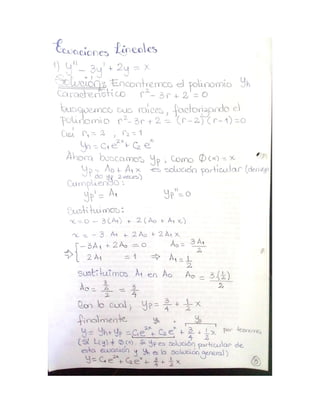 Ecuaciones Lineales
1) y'' - 3y' + 2y = x
Solución: Encontremos el polinomio y_h
Característico r² - 3r + 2 = 0
busquemos sus raíces, factorizando el
polinomio r² - 3r + 2 = (r-2)(r-1) = 0
Así r₁ = 2 , r₂ = 1
y_h = C₁e^{2x} + C₂e^x
Ahora buscamos y_p. Como Φ(x) = x
y_p = A₀ + A₁x es solución particular
Cumpliendo:
y_p' = A₁ y_p'' = 0
Sustituimos:
x = 0 - 3(A₁) + 2(A₀ + A₁x)
x = -3A₁ + 2A₀ + 2A₁x
⇒ { -3A₁ + 2A₀ = 0 A₀ = 3A₁/2
2A₁ = 1 ⇒ A₁ = 1/2
sustituimos A₁ en A₀ A₀ = 3·(1/2)/2
A₀ = (3/2)/2 = 3/4
Con lo cual, y_p = 3/4 + 1/2 x
finalmente y_h y_p
y = y_h + y_p = C₁e^{2x} + C₂e^x + 3/4 + 1/2 x por teorema
(Si L(y) = Φ(x). Si y_p es solución particular de
esta ecuación y y_h es la solución general)
y = C₁e^{2x} + C₂e^x + 3/4 + 1/2 x